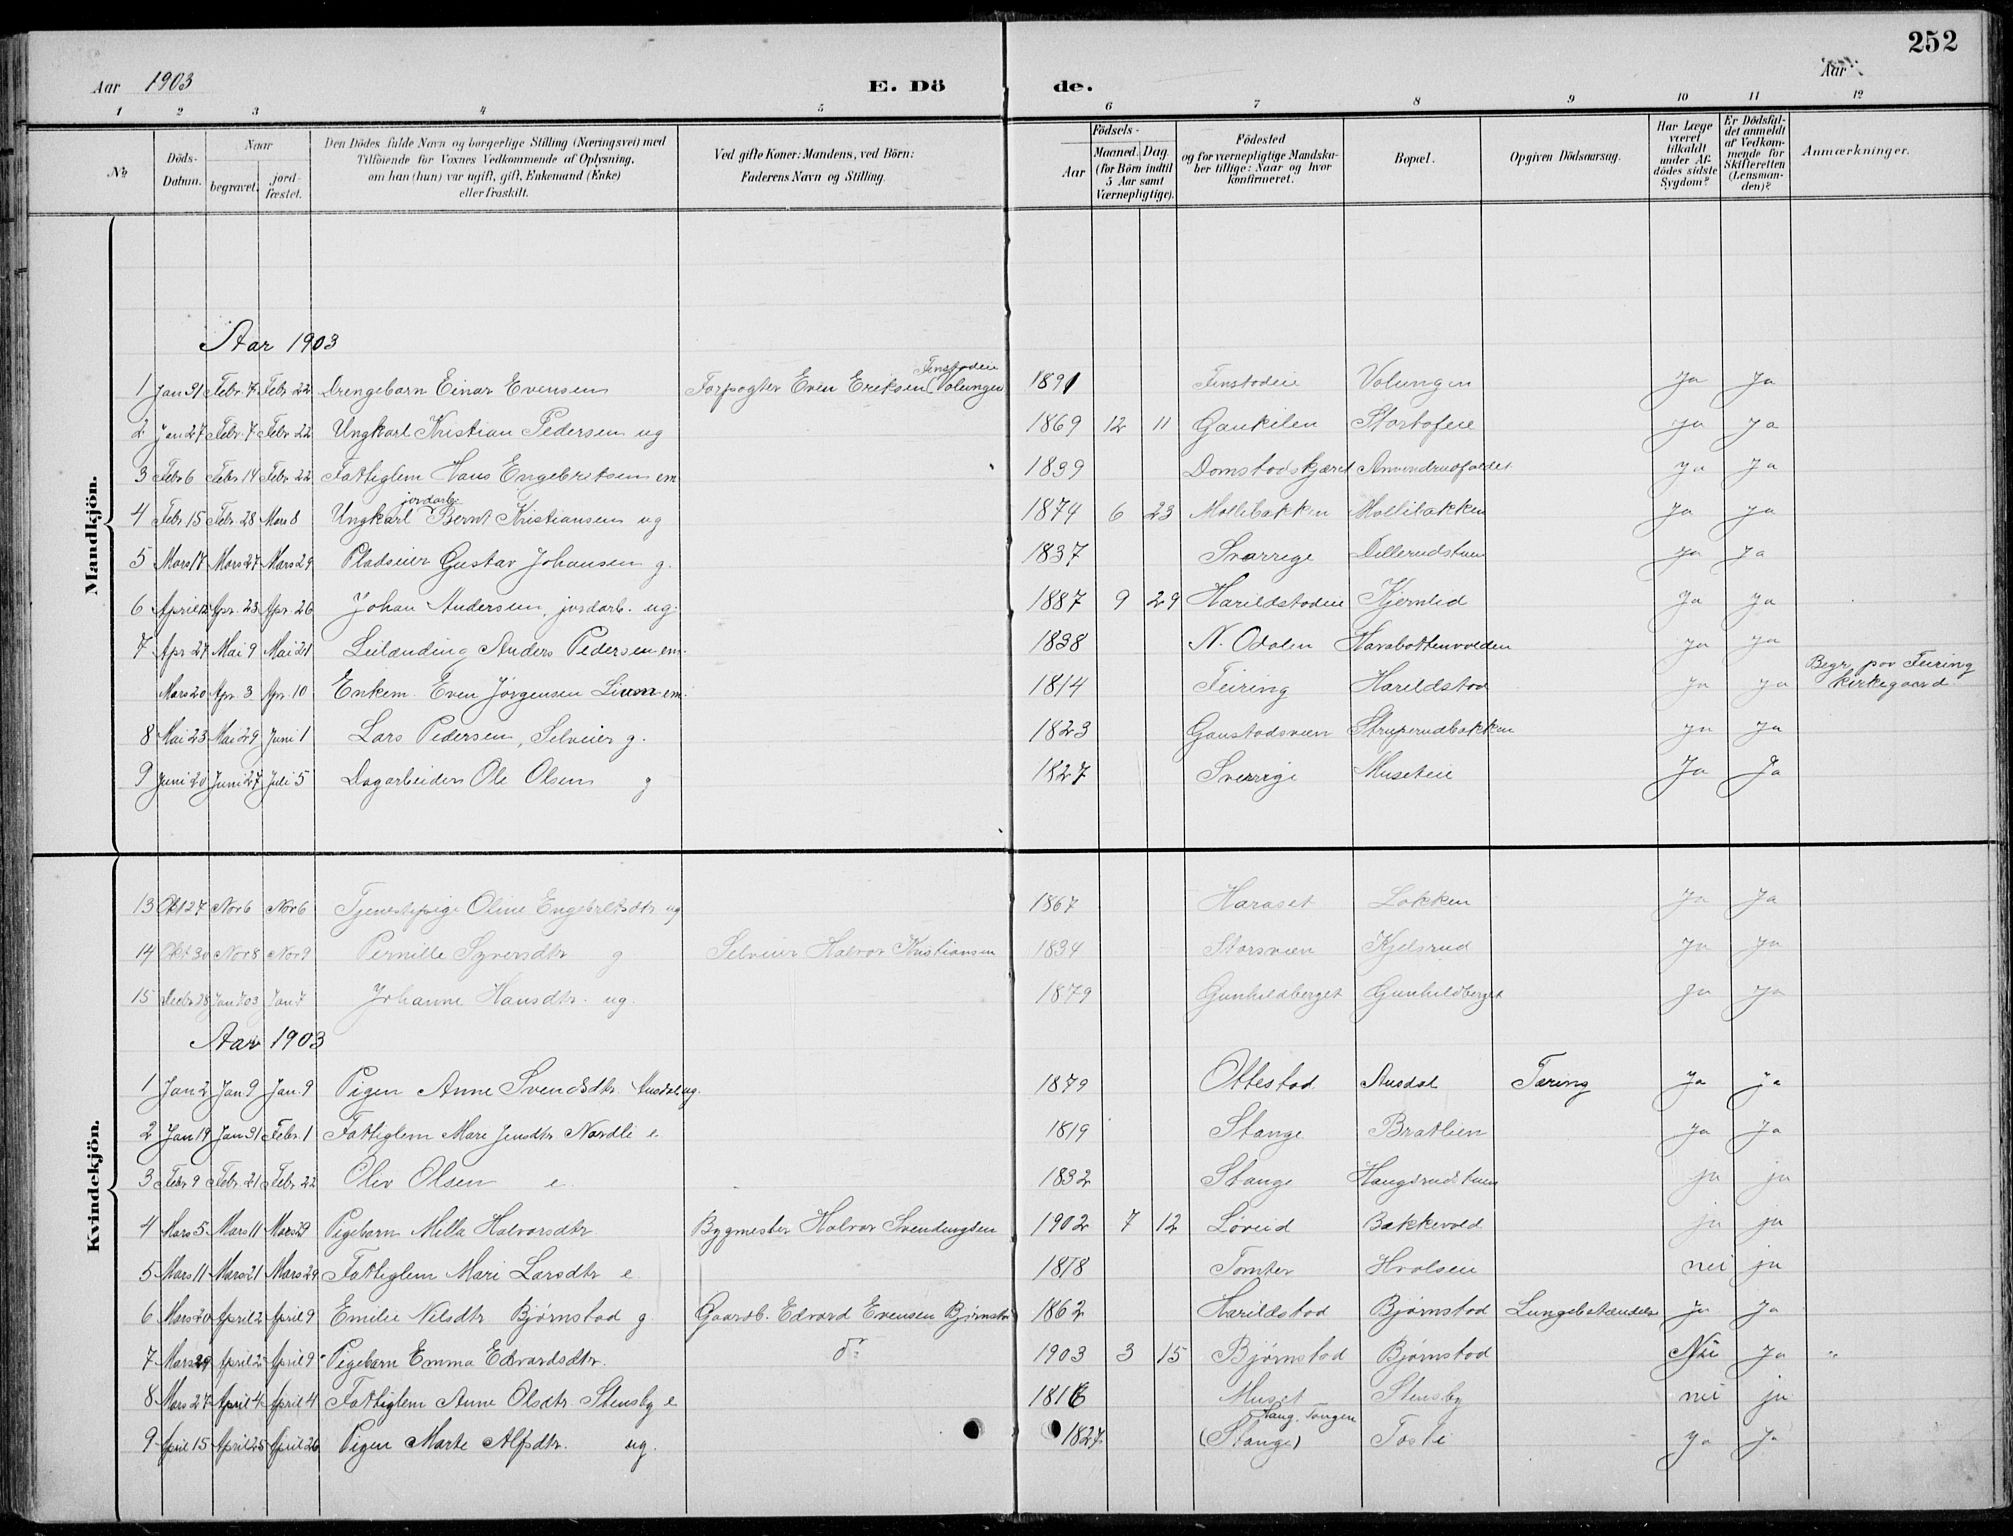 252
Aar 1903 E. Dö de. Aar
1 2 3 4 5 6 7 8 9 10 11 12
No
Döds-Datum.
Naar
begravet.
jord-fæstet.
Den Dödes fulde Navn og borgerlige Stilling (Næringsvei) med
Tilföiende for Voxnes Vedkommende af Oplysning,
om han (hun) var ugift, gift, Enkemand (Enke)
eller fraskilt.
Ved gifte Koner: Mandens, ved Börn:
Faderens Navn og Stilling.
Födsels-
Aar
Maaned. Dag.
(for Börn indtil
5 Aar samt
Værnepligtige).
Födested
og for værnepligtige Mandska-
ber tillige: Naar og hvor
konfirmeret.
Bopæl.
Opgiven Dödsaarsag.
Har Læge
været
tilkaldt
under Af-
dödes sidste
Sygdom?
Er Dödsfal-
det anmeldt
af Vedkom-
mende for
Skifteretten
(Lensman-
den)?
Anmærkninger.
Mandkjön.
Aar 1903
1 Jan 31 Febr. 7 Febr 22 Drengebarn Einar Evensen Forpagter Even Eriksen Finstadeie (Volungen 1891 Finstadeie Volungen Ja Ja
2 Jan 27 Febr. 7 Febr 22 Ungkarl Kristian Pedersen ug 1869 12 11 Gaukilen Stortofeie ja ja
3 Febr 6 Febr 14 Febr 22 Fattiglem Hans Engebretsen em 1839 Domstadskjæret ja Ja
4 Febr 15 Febr. 28 Mars 8 Ungkarl jordarb. Bernt Kristiansen ug 1874 6 23 Mollibakken Mollibakken Ja ja
5 Mars 17 Mars 27 Mars 29 Pladseier Gustav Johansen g. 1837 Svarrige Dillerudstuen ja Ja
6 April 12 Apr. 23 Apr. 26 Johan Andersen, jordarb. ug. 1887 9 29 Harildstadeie Kjernlid Ja ja
7 Apr 27 Mai 9 Mai 21 Leilænding Anders Pedersen em. 1838 N. Odalen ja ja
Mars 20 Apr. 3 Apr. 10 Enkem. Even Jørgensen em. 1814 Feiring Harildstad ja ja Begr. paa Feiring
Kirkegaard
8 Mai 23 Mai 29 Juni 1 Lars Pedersen, Selveier g. 1823 Gaustadsveen Struperudbakken ja Ja
9 Juni 20 Juni 27 Juli 5 Dagarbeider Ole Olsen g 1827 Sverrige Museteie Ja Ja
Kvindekjön.
13 Okt 27 Nov 6 Nov 6 Tjenestepige Oline Engebretsdtr ug 1867 Haraset Løkken Ja Ja
14 Okt 30 Nov 8 Nov 9 Pernille Syversdtr g Selveier Halvor Kristiansen 1834 Storsveen Kjelsrud Ja Ja
15 Decbr 28 Jan 7 03 Jan 7 Johanne Hansdtr. ug. 1879 Gunhildberget Gunhildberget Ja ja
Aar 1903
1 Jan 2 Jan 9 Jan. 9 Pigen Anne Svendsdtr. Ausdal ug. 1879 Ottestad Ausdal Tæring Ja ja
2 Jan 19 Jan 31 Febr. 1 Fattiglem Mari Jensdtr Nordli e. 1819 Stange Bratlien ja Ja
3 Febr 9 Febr. 21 Febr. 22 Oliv Olsen e. 1832 Stange Haugsrudstuen ja ja
4 Mars 5 Mars 11 Mars 29 Pigebarn Milla Halvorsdtr Bygmester Halvor Svendingsen 1902 7 12 Løveid Bakkevold ja ja
5 Mars 11 Mars 21 Mars 29 Fattiglem Mari Larsdtr e 1818 Tomter Hvolseie nei ja
6 Mars 20 April 2 April 9 Emilie Nilsdtr Bjørnstad g Gaardb. Edvard Evensen Bjørnstad 1862 Harildstad Bjørnstad Lungebetændelse ja Ja
7 Mars 29 April 2 April 9 Pigebarn Emma Edvardsdtr. do 1903 3 15 Bjørnstad Bjørnstad Nei Ja "
8 Mars 27 April 4 April 4 Fattiglem Anne Olsdtr Stensby e 1816 Muset Stensby nei ja
9 April 15 April 25 April 26 Pigen Marte Alfsdtr. ug. 1827 Tangen (Stange) Toste Ja Ja